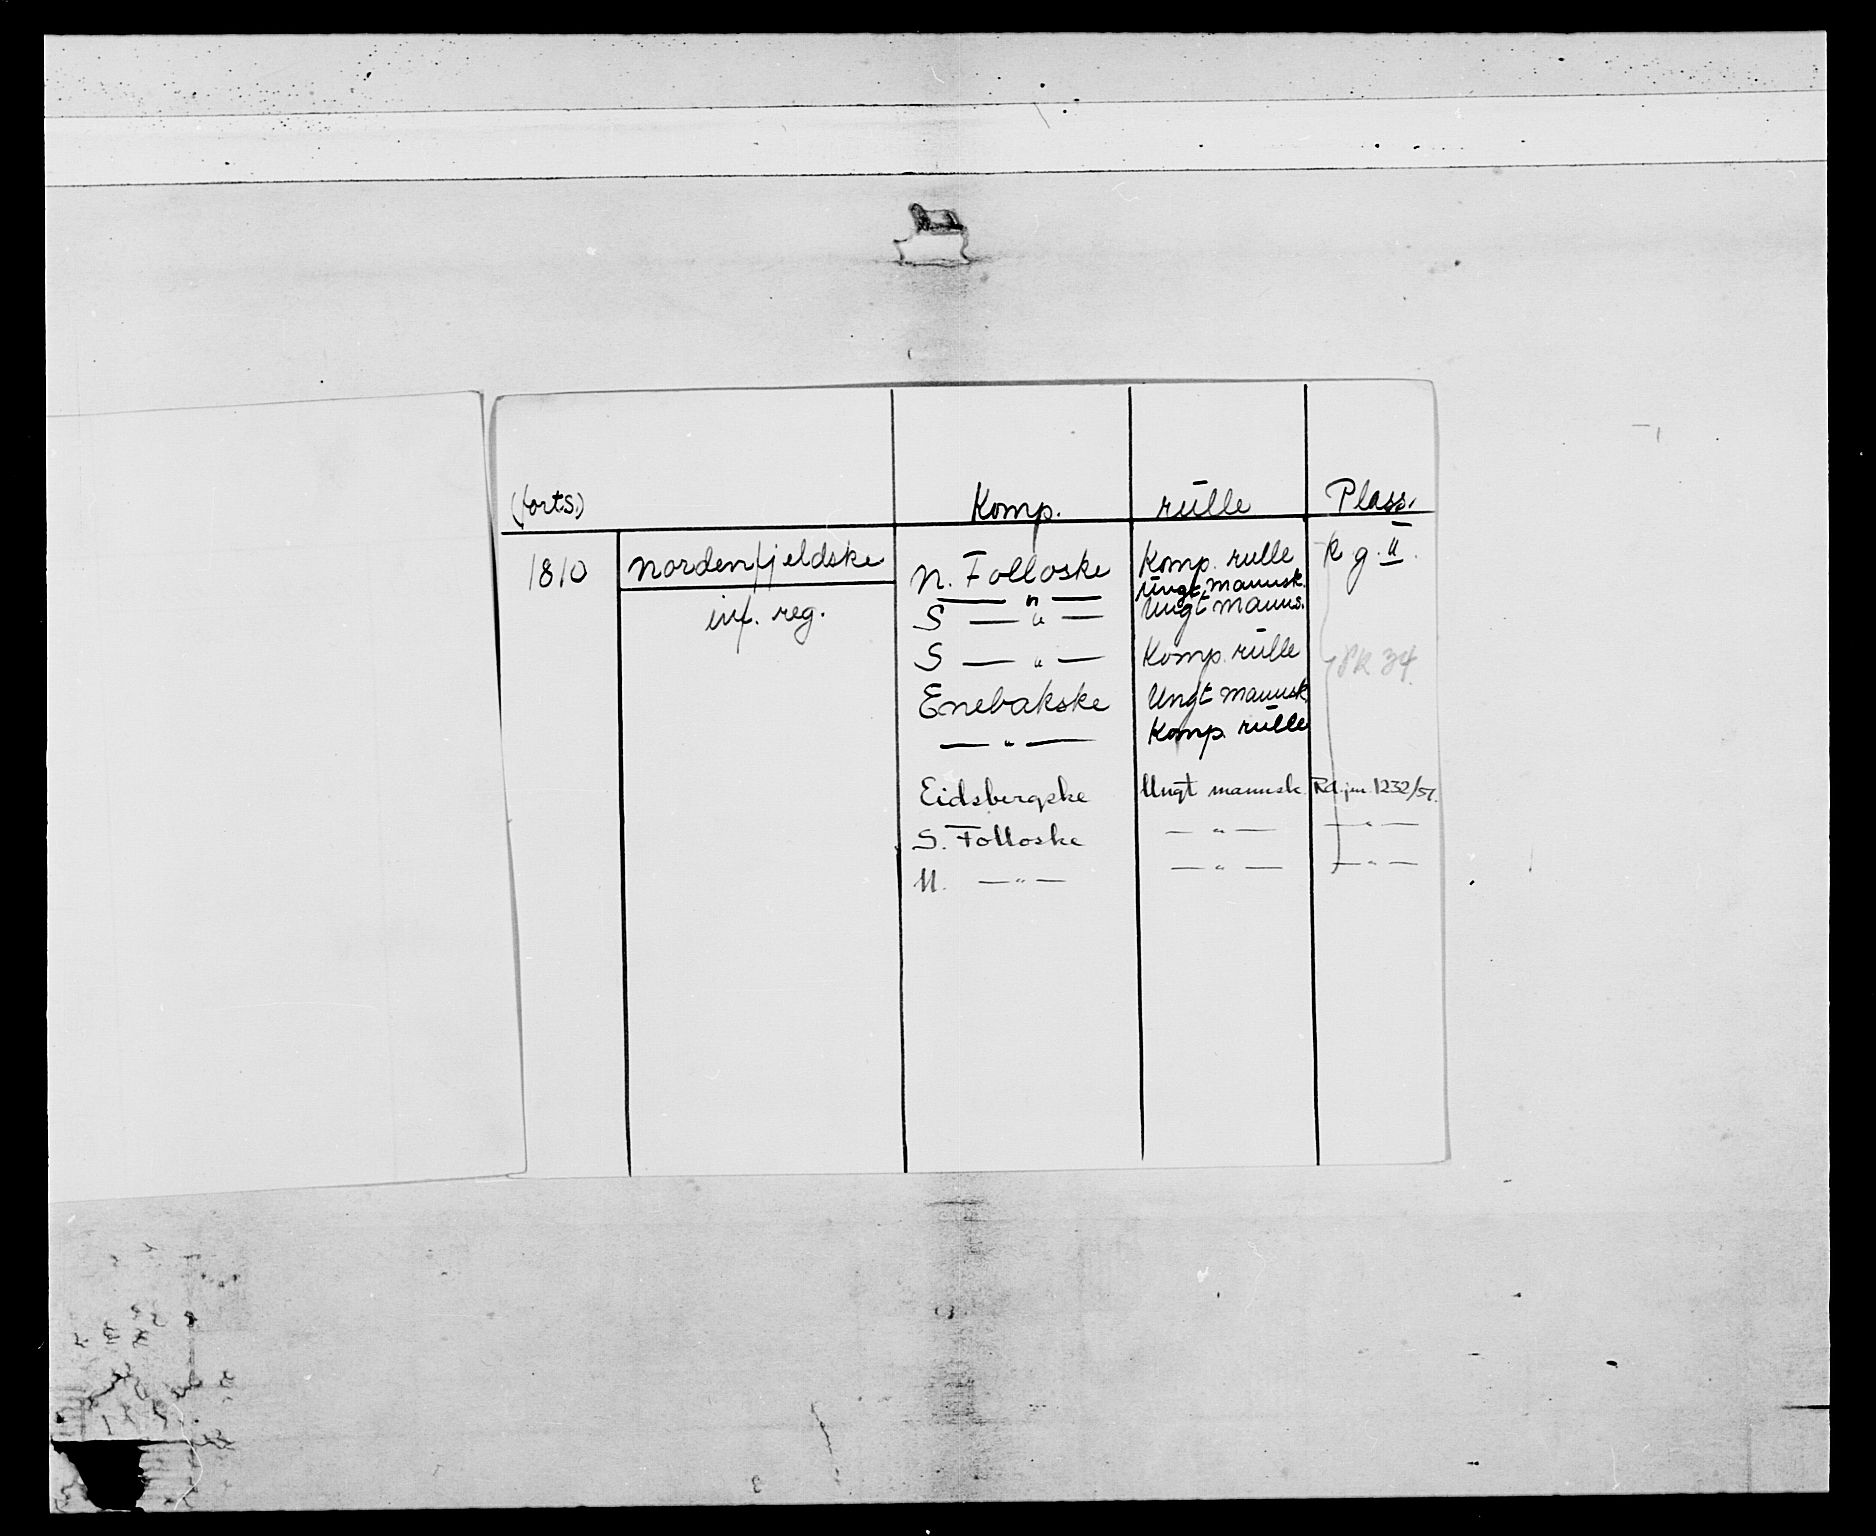 (forts.) Komp. rulle Plass.
1810 nordenfjeldske N. Folloske Komp. rulle R g. II.
— " — Ungt mannsk.
inf. reg. S — " — Ungt manns.
S — " — Komp. rulle PK 34
Enebakske Ungt mannsk.
— " — Komp. rulle
Eidsbergske Ungt mannsk. Rd. jnr. 1232/51.
S. Folloske — " — — " —
N. — " — — " — — " —